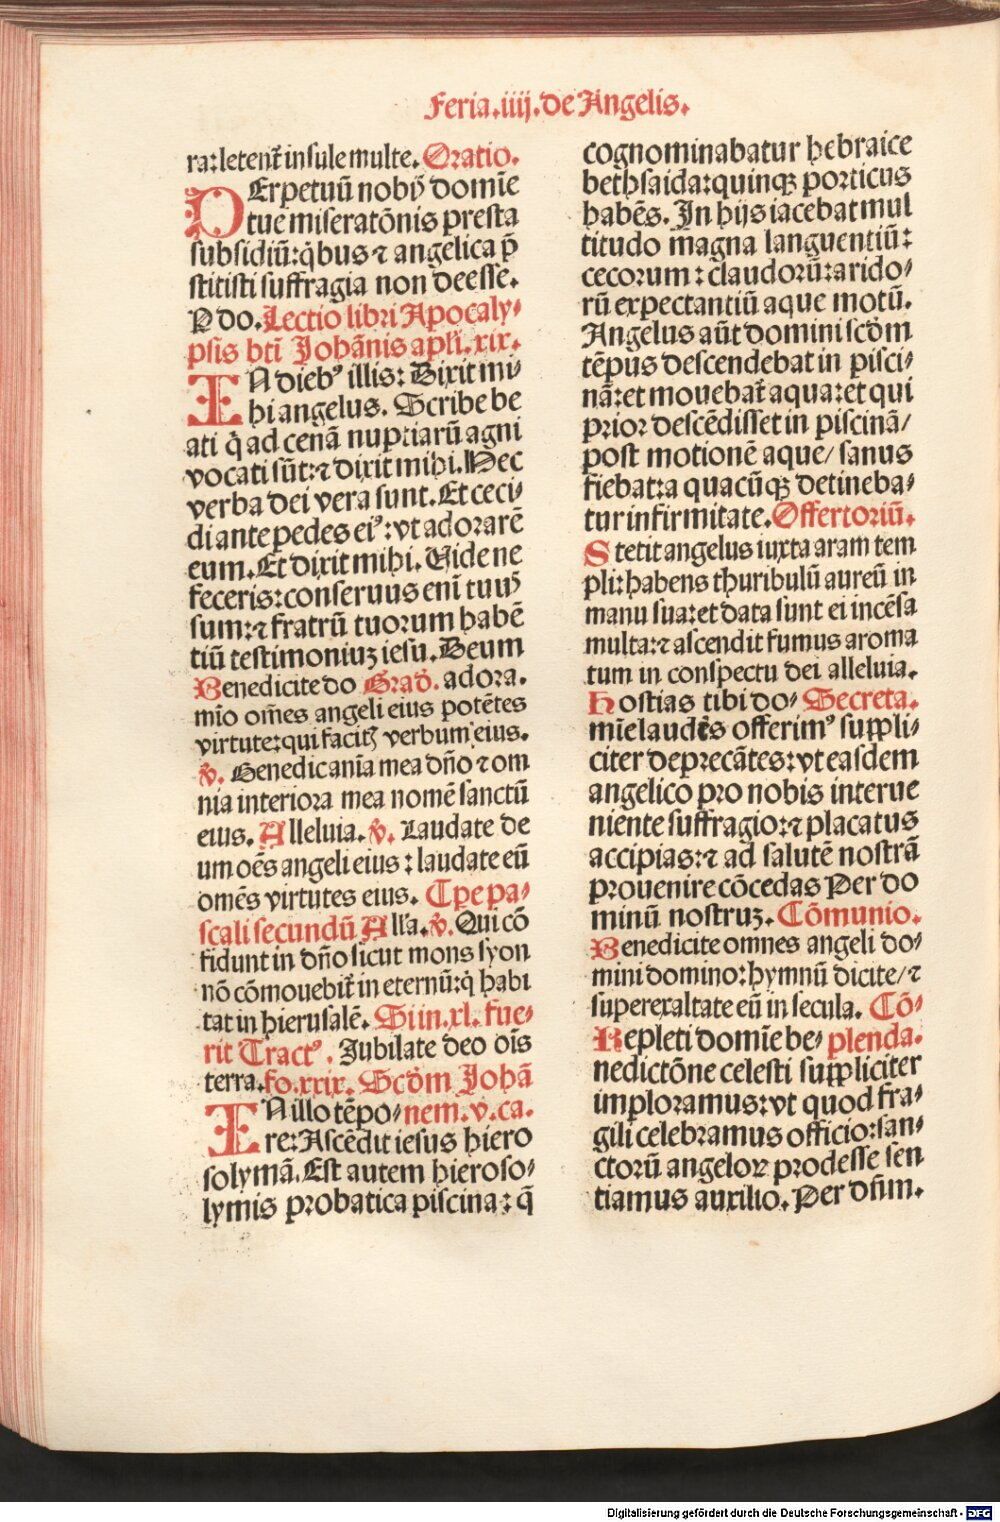 Feria.iiij.de Angelis.
ra:letent̄ insule multe. Oratio.
PErpetuū nobis̄ domīe
tue miseratōnis presta
subsidiū:q̇bus ⁊ angelica p̄
stitisti suffragia non deesse.
P do. Lectio libri Apocaly⸗
psis bt̄i Johānis apl̄i.xix.
IN diebꝰ illis: Dixit mi⸗
hi angelus. Scribe be
ati q̇ ad cenā nuptiarū agni
vocati sūt:⁊ dixit mihi. Hec
verba dei vera sunt. Et ceci⸗
di ante pedes eiꝰ: vt adorarē
eum. Et dixit mihi. Vide ne
feceris:conseruus enī tuus̄
sum:⁊ fratrū tuorum habē
tiū testimoniuꝫ iesu. Deum
Benedicite do Grad̄. adora.
mīo om̄es angeli eius potētes
virtute:qui facit̄ verbum eius.
v̄. Benedic anīa mea dn̄o ⁊ om
nia interiora mea nomē sanctū
eius. Alleluia. v̄. Laudate de
um oēs angeli eius: laudate eū
omēs virtutes eius. Tp̄e pa⸗
scali secundū All'a. v̄. Qui cō
fidunt in dn̄o sicut mons syon
nō cōmouebit̄ in eternū:q̇ habi
tat in hierusalē. Si in.xl. fue⸗
rit Tractꝰ. Jubilate deo oīs
terra. fo.xxix. Scd̄m Johā
IN illo tēpo⸗ nem.v.ca.
re: Ascēdit iesus hiero
solymā. Est autem hieroso⸗
lymis probatica piscina: q̄
cognominabatur hebraice
bethsaida:quinqꝫ porticus
habēs. In hijs iacebat mul
titudo magna languentiū:
cecorum: claudorū:arido⸗
rū expectantiū aque motū.
Angelus aūt domini scd̄m
tēpus descendebat in pisci⸗
nā:et mouebat̄ aqua:et qui
prior descēdisset in piscinā/
post motionē aque/ sanus
fiebat:a quacūqꝫ detineba⸗
tur infirmitate. Offertoriū.
Stetit angelus iuxta aram tem
pli:habens thuribulū aureū in
manu sua:et data sunt ei incēsa
multa:⁊ ascendit fumus aroma
tum in conspectu dei alleluia.
Hostias tibi do⸗ Secreta.
mīe laudes offerimꝰ suppli⸗
citer deprecātes: vt easdem
angelico pro nobis interue
niente suffragio:⁊ placatus
accipias:⁊ ad salutē nostrā
prouenire cōcedas Per do
minū nostruꝫ. Cōmunio.
Benedicite omnes angeli do⸗
mini domino:hymnū dicite/⁊
superexaltate eū in secula. Cō⸗
Repleti domīe be⸗ plenda.
nedictōne celesti suppliciter
imploramus: vt quod fra⸗
gili celebramus officio:san⸗
ctorū angeloꝝ prodesse sen
tiamus auxilio. Per dn̄m.
Digitalisierung gefördert durch die Deutsche Forschungsgemeinschaft - DFG